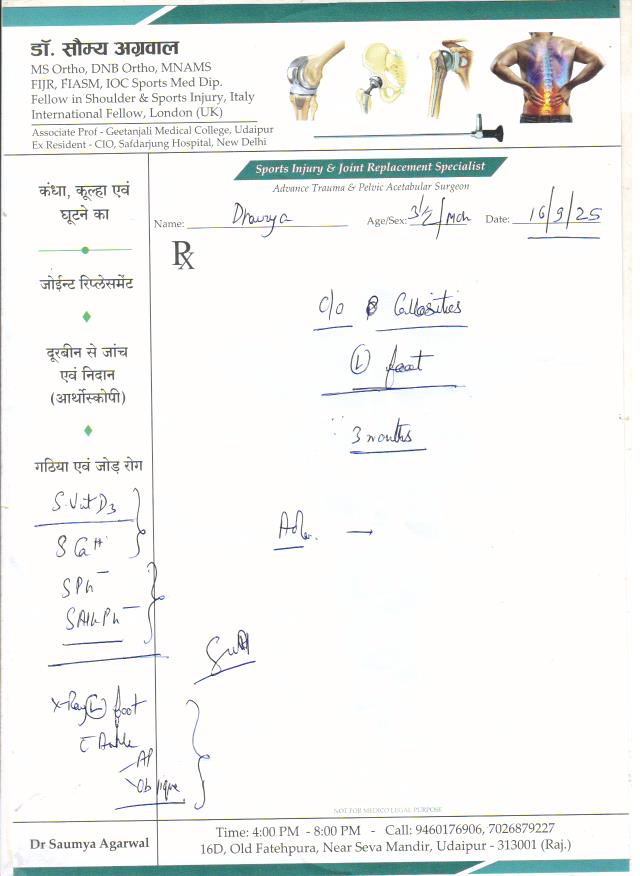 डॉ. सौम्य अग्रवाल
MS Ortho, DNB Ortho, MNAMS
FIJR, FIASM, IOC Sports Med Dip.
Fellow in Shoulder & Sports Injury, Italy
International Fellow, London (UK)
Associate Prof - Geetanjali Medical College, Udaipur
Ex Resident - CIO, Safdarjung Hospital, New Delhi
Sports Injury & Joint Replacement Specialist
Advance Trauma & Pelvic Acetabular Surgeon
Name: Age/Sex: 3½/Mch Date: 16/9/25
Rx
कंधा, कूल्हा एवं
घूटने का
जोईन्ट रिप्लेसमेंट
दूरबीन से जांच
एवं निदान
(आर्थोस्कोपी)
गठिया एवं जोड़ रोग
c/o Callosities
(L) foot
3 months
Adv. →
S. Vit D3
S Ca++
S Ph–
S Alk Ph–
X-Ray (L) foot
c̄ Ankle
AP
Oblique
NOT FOR MEDICO LEGAL PURPOSE
Dr Saumya Agarwal
Time: 4:00 PM - 8:00 PM - Call: 9460176906, 7026879227
16D, Old Fatehpura, Near Seva Mandir, Udaipur - 313001 (Raj.)